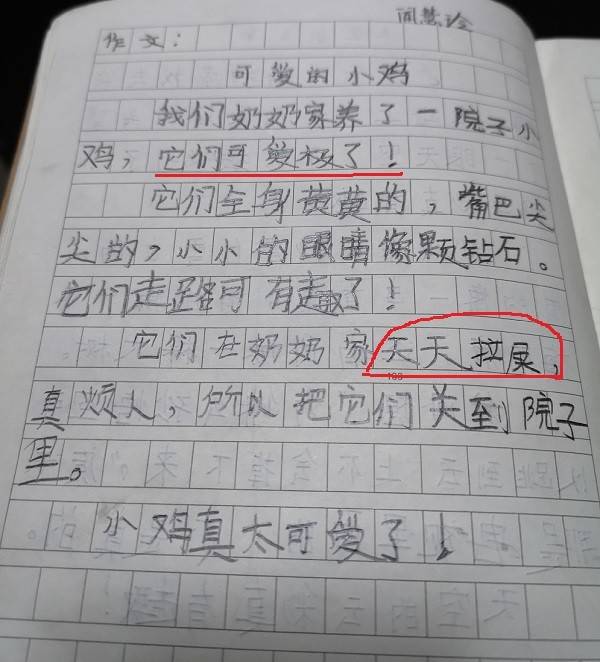 闻慧玲
作文:
可爱的小鸡
我们奶奶家养了一院子小
鸡,它们可爱极了!
它们全身黄黄的,嘴巴尖
尖的,小小的眼睛像颗钻石。
它们走路可有趣了!
它们在奶奶家天天拉屎,
真烦人,所以把它们关到院子
里。
小鸡真太可爱了!